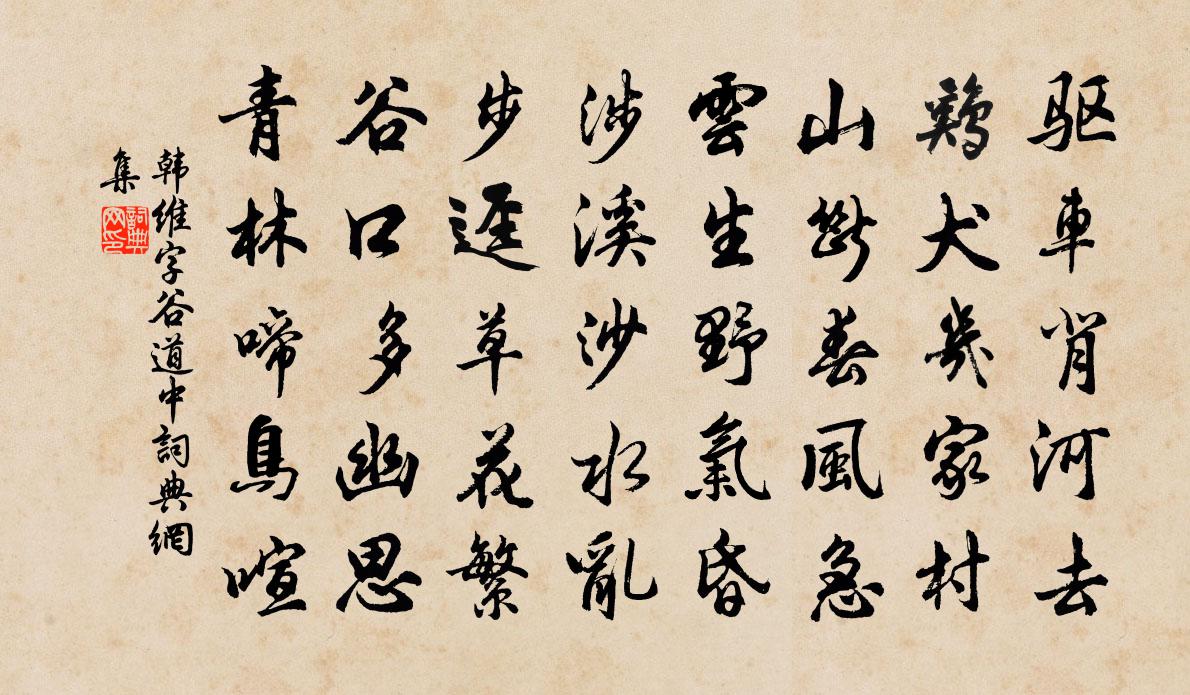 驱車背河去
鷄犬幾家村
山斷春風急
雲生野氣昏
涉溪沙水亂
步逕草花繁
谷口多幽思
青林啼鳥喧
韩維字谷道中詞典網
集
詞典网印